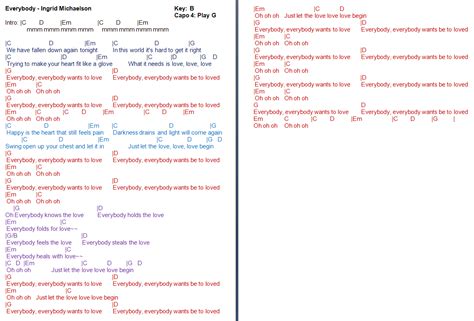 Everybody - Ingrid Michaelson Key: B
Capo 4: Play G
Intro: |C D |Em |C D |Em |
mmm mmmm mmm mmm mmmm mmm
|C D |Em |C D |G
We have fallen down again tonight In this world it's hard to get it right
|C D |Em |C D |G
Trying to make your heart fit like a glove What it needs is love, love, love
|G |D
Everybody, everybody wants to love Everybody, everybody wants to be loved
|Em |C
Oh oh oh Oh oh oh
|G |D
Everybody, everybody wants to love Everybody, everybody wants to be loved
|Em |C
Oh oh oh Oh oh oh
|C D |Em |C D |G
Happy is the heart that still feels pain Darkness drains and light will come again
|C D |Em |C D |G
Swing open up your chest and let it in Just let the love, love, love begin
|G |D
Everybody, everybody wants to love Everybody, everybody wants to be loved
|Em |C
Oh oh oh Oh oh oh
|G |D
Everybody, everybody wants to love Everybody, everybody wants to be loved
|Em |C
Oh oh oh Oh oh oh
|G |D
Oh Everybody knows the love Everybody holds the love
|Em |C
Everybody folds for love~~
|G/B |D
Everybody feels the love Everybody steals the love
|Em |C
Everybody heals with love~~
Oh oh oh Just let the love love love begin
|G |D
Everybody, everybody wants to love Everybody, everybody wants to be loved
|Em |C
Oh oh oh Just let the love love love begin
|G |D
Everybody, everybody wants to love Everybody, everybody wants to be loved
|Em |C
Oh oh oh Just let the love love love begin
|G |D
Everybody, everybody wants to love Everybody, everybody wants to be loved
|Em |C
Oh oh oh Oh oh oh
|G |D
Everybody, everybody wants to love Everybody, everybody wants to be loved
|Em |C
Oh oh oh Oh oh oh
|G |D
Everybody, everybody wants to love Everybody, everybody wants to be loved
Oh oh oh Oh oh oh